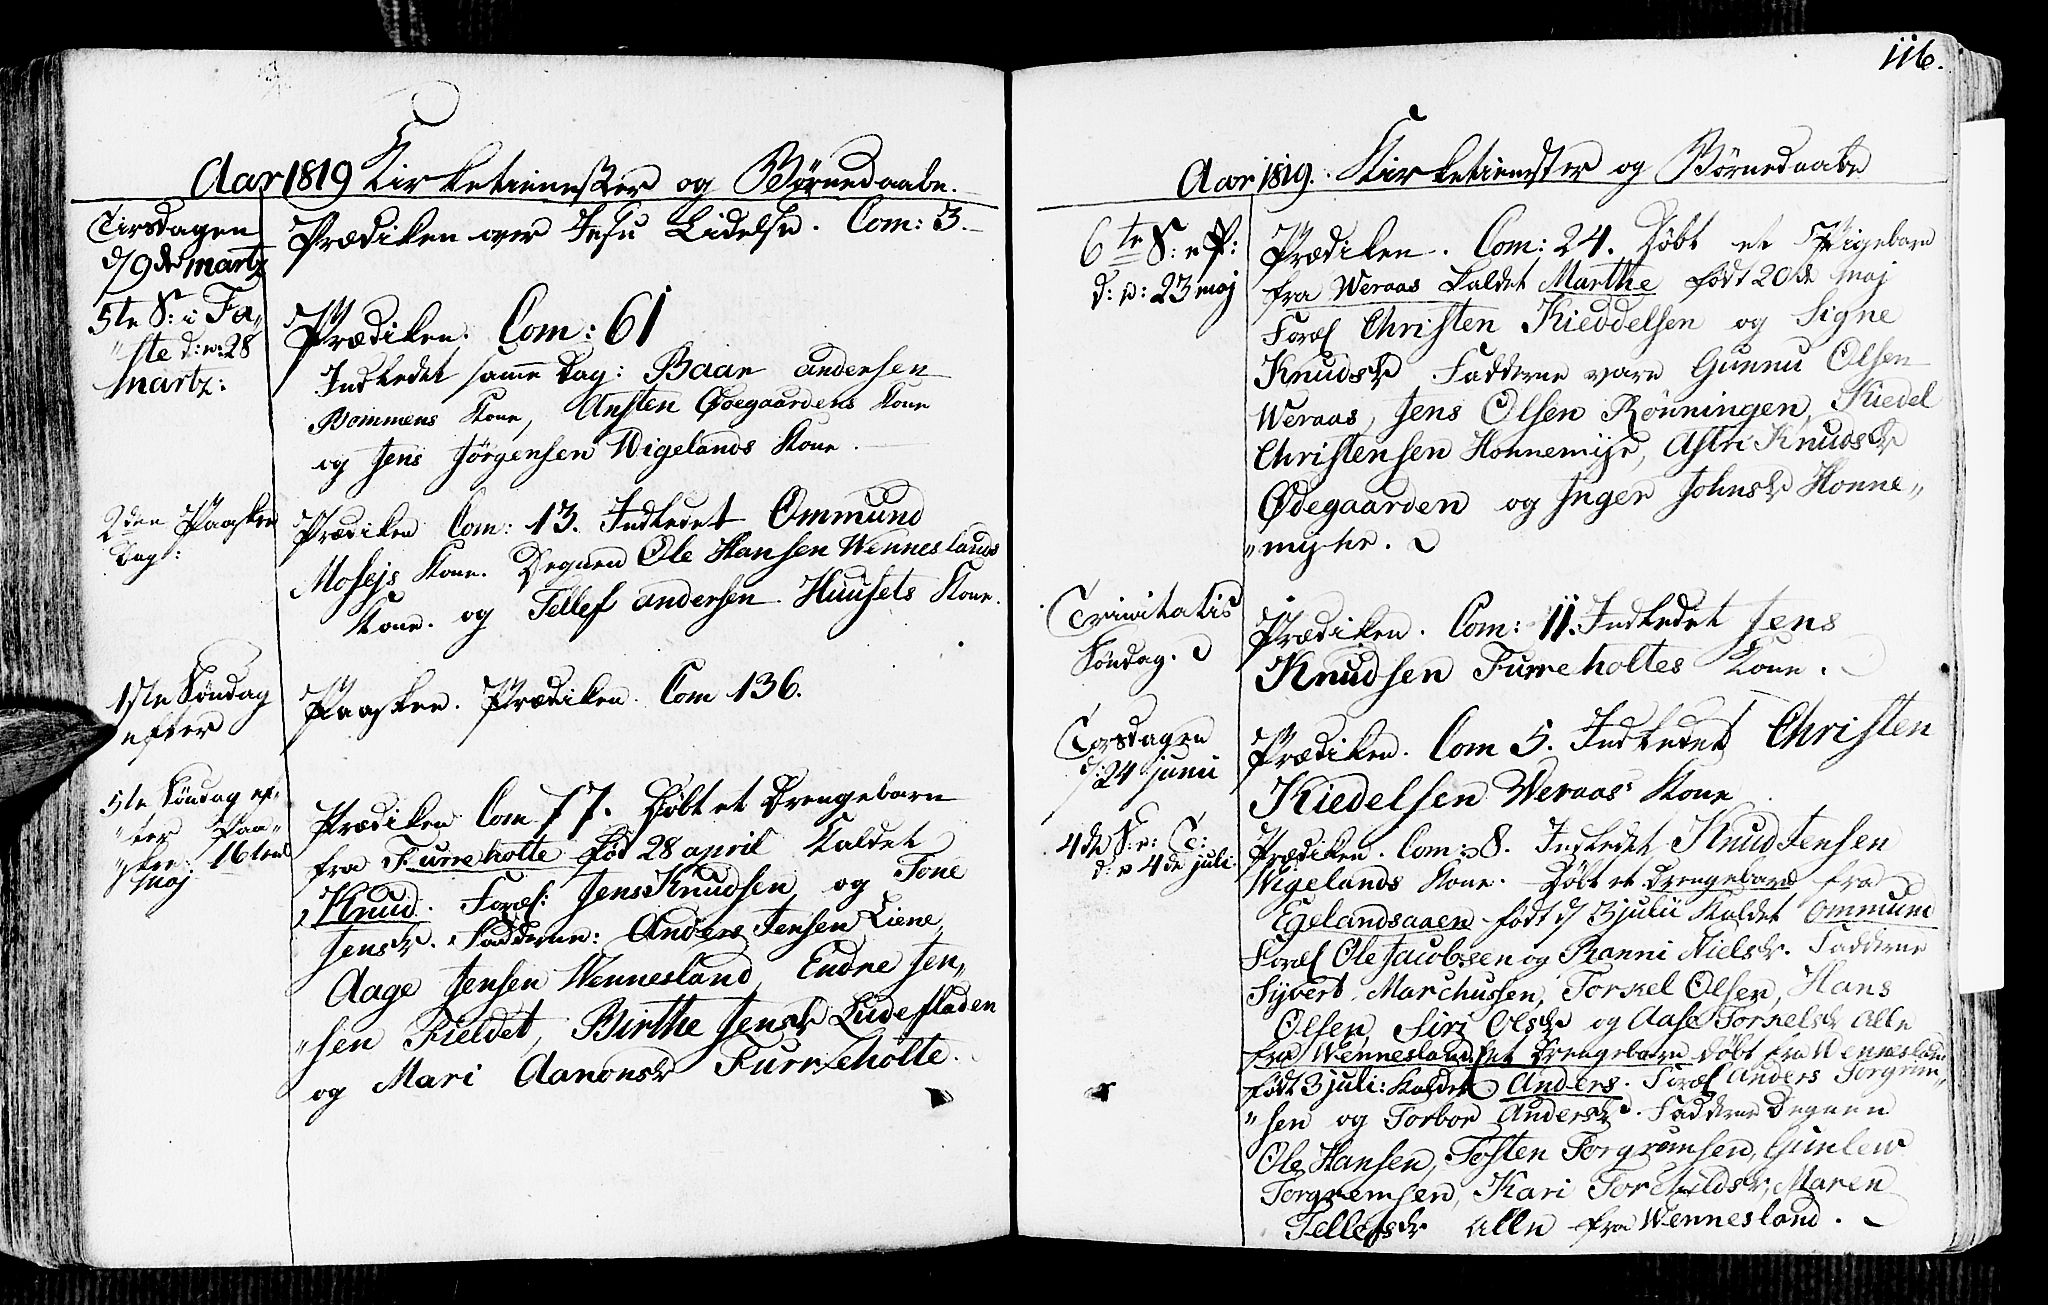 Aar 1819 Kirketienester og Børnedaabe.
Tirsdagen
d/9de Martz
Prædiken over Jesu Lidelse. Com: 3.
5te S: i Fa„
„ste d: e: 28
Martz:
Prædiken. Com: 61
Indledet samme Dag: Baar Andersen
Bommens Kone, Ansten Ødegaardens Kone
og Jens Jørgensen Wigelands Kone.
2den Paaske
Dag:
Prædiken Com: 13. Indledet Ommund
Mosejs Kone. Degnen Ole Hansen Wenneslands
Kone. og Tellef Andersen Huusets Kone.
1ste Søndag
efter
Paaske. Prædiken. Com 136.
5te Søndag ef„
„ter Paa„
„ske: 16tend
Maj
Prædiken Com 77. Døbt et Drengebarn
fra Furreholte fød 28 april kaldet
Knud. Foræl: Jens Knudsen og Tone
Jensdr. Fadderne: Anders Jensen Liene,
Aage Jensen Wennesland, Endre Jen„
„sen Fieldet, Birthe Jensdr Ludefladen
og Mari Aanonsdr Furreholte.
116.
Aar 1819. Kirketienester og Børnedaabe
6te S: e P:
d: e: 23 Maj
Prædiken. Com: 24. Døbt et Pigebarn
fra Weraas kaldet Marthe født 20de Maj
Foræl Christen Kieddelsen og Signe
Knudsdr Fadderne vare Gunnu Olsen
Weraas, Jens Olsen Rönningen, Kiedel
Christensen Honnemyr, Astri Knudsdr
Ødegaarden og Inger Johnsdr Honne„
„myhr.
Trinitatis
Søndag.
Prædiken. Com: 11. Indledet Jens
Knudsen Furreholtes Kone.
Torsdagen
d/24 Junii
Prædiken. Com 5. Indledet Christen
Kiedelsen Weraas Kone
4de S: e: T:
d: e 4de juli.
Prædiken. Com: 8. Indledet Knud Jensen
Wigelands Kone. Døbt et Drengebarn fra
Egelandsaaen født d/ 3 julii kaldet Ommund
Foræl Ole Jacobsen og Ranni Nielsdr. Fadderne
Syvert Marchussen, Torkel Olsen, Hans
Olsen, Siri Olsdr og Aase Torkelsdr Alle
fra Wennesland. et Drengebarn døbt fra Wennesland
født 3 juli: kaldet Anders. Foræl Anders Torgrim„
„sen og Torbor Andersdr. Fadderne Degnen
Ole Hansen, Tosten Torgrimsen, Gunlew
Torgremsen, Kari Torchildsdr, Maren
Tellefsdr alle fra Wennesland.